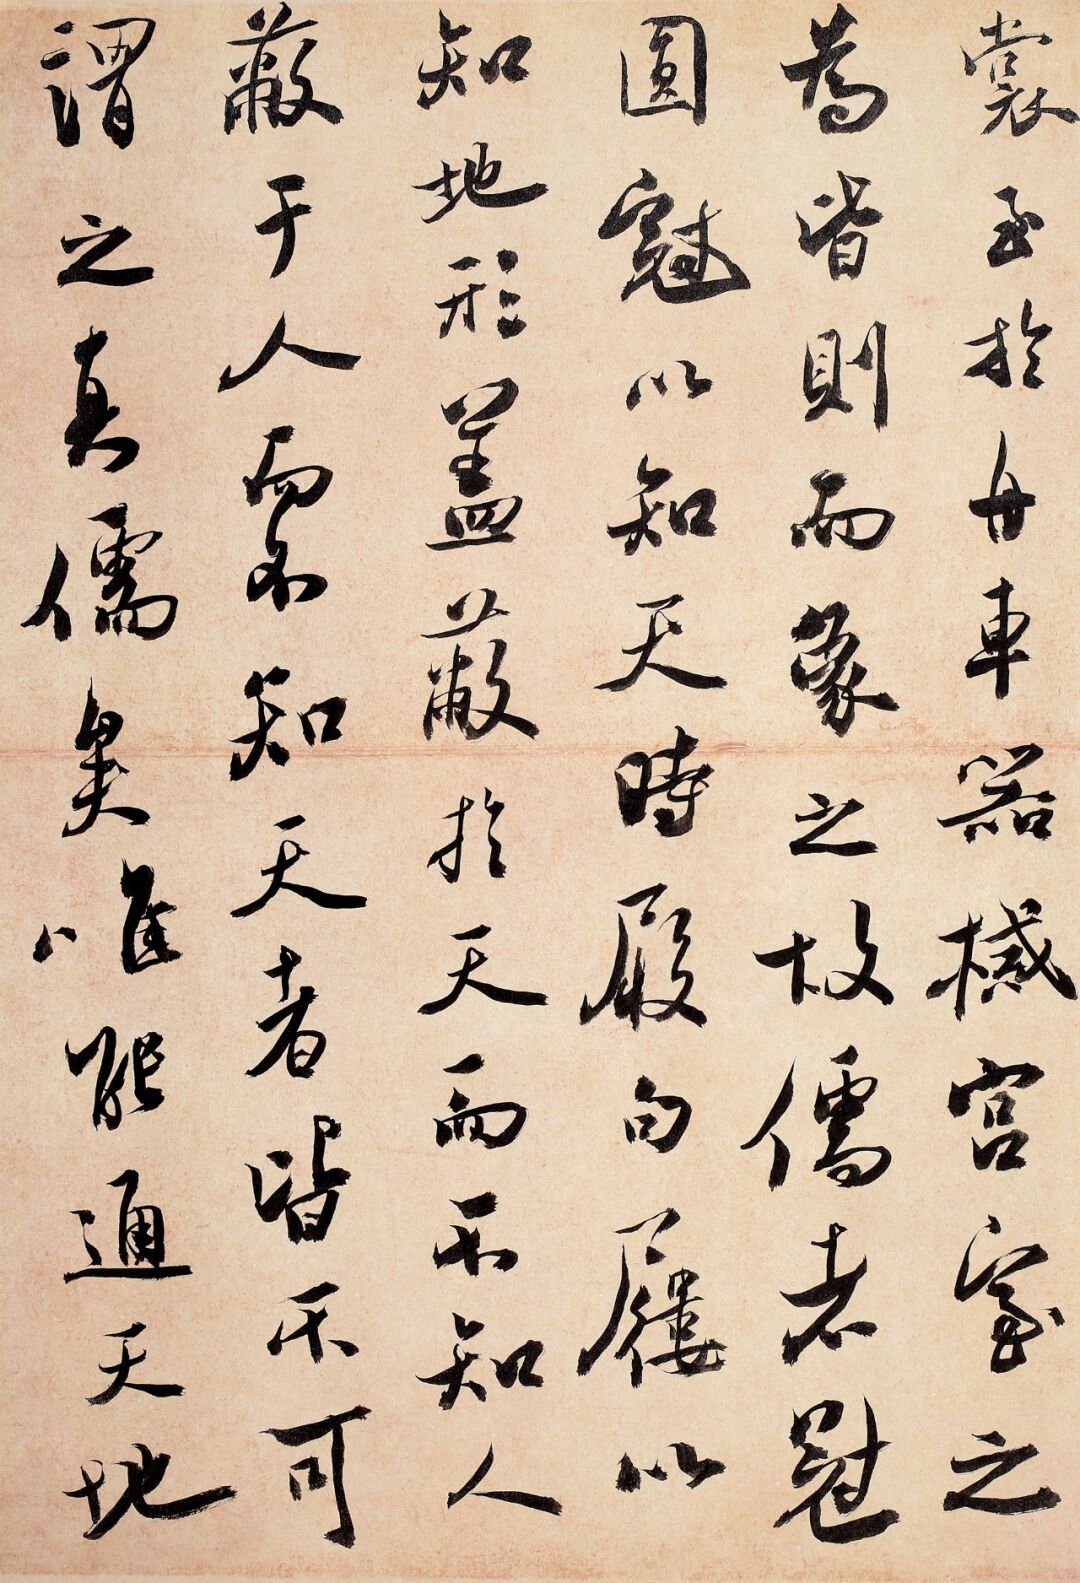 裳至於舟車器械宮室之
為皆則而象之故儒者冠
圓冠以知天時履句屨以
知地形蓋蔽於天而不知人
蔽于人而不知天者皆不可
謂之真儒矣唯能通天地